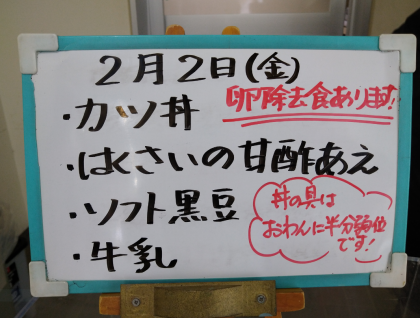 2月2日(金)
・カツ丼
卵除去食あります!
・はくさいの甘酢あえ
・ソフト黒豆
・牛乳
丼の具は
おわんに半分弱位
です!